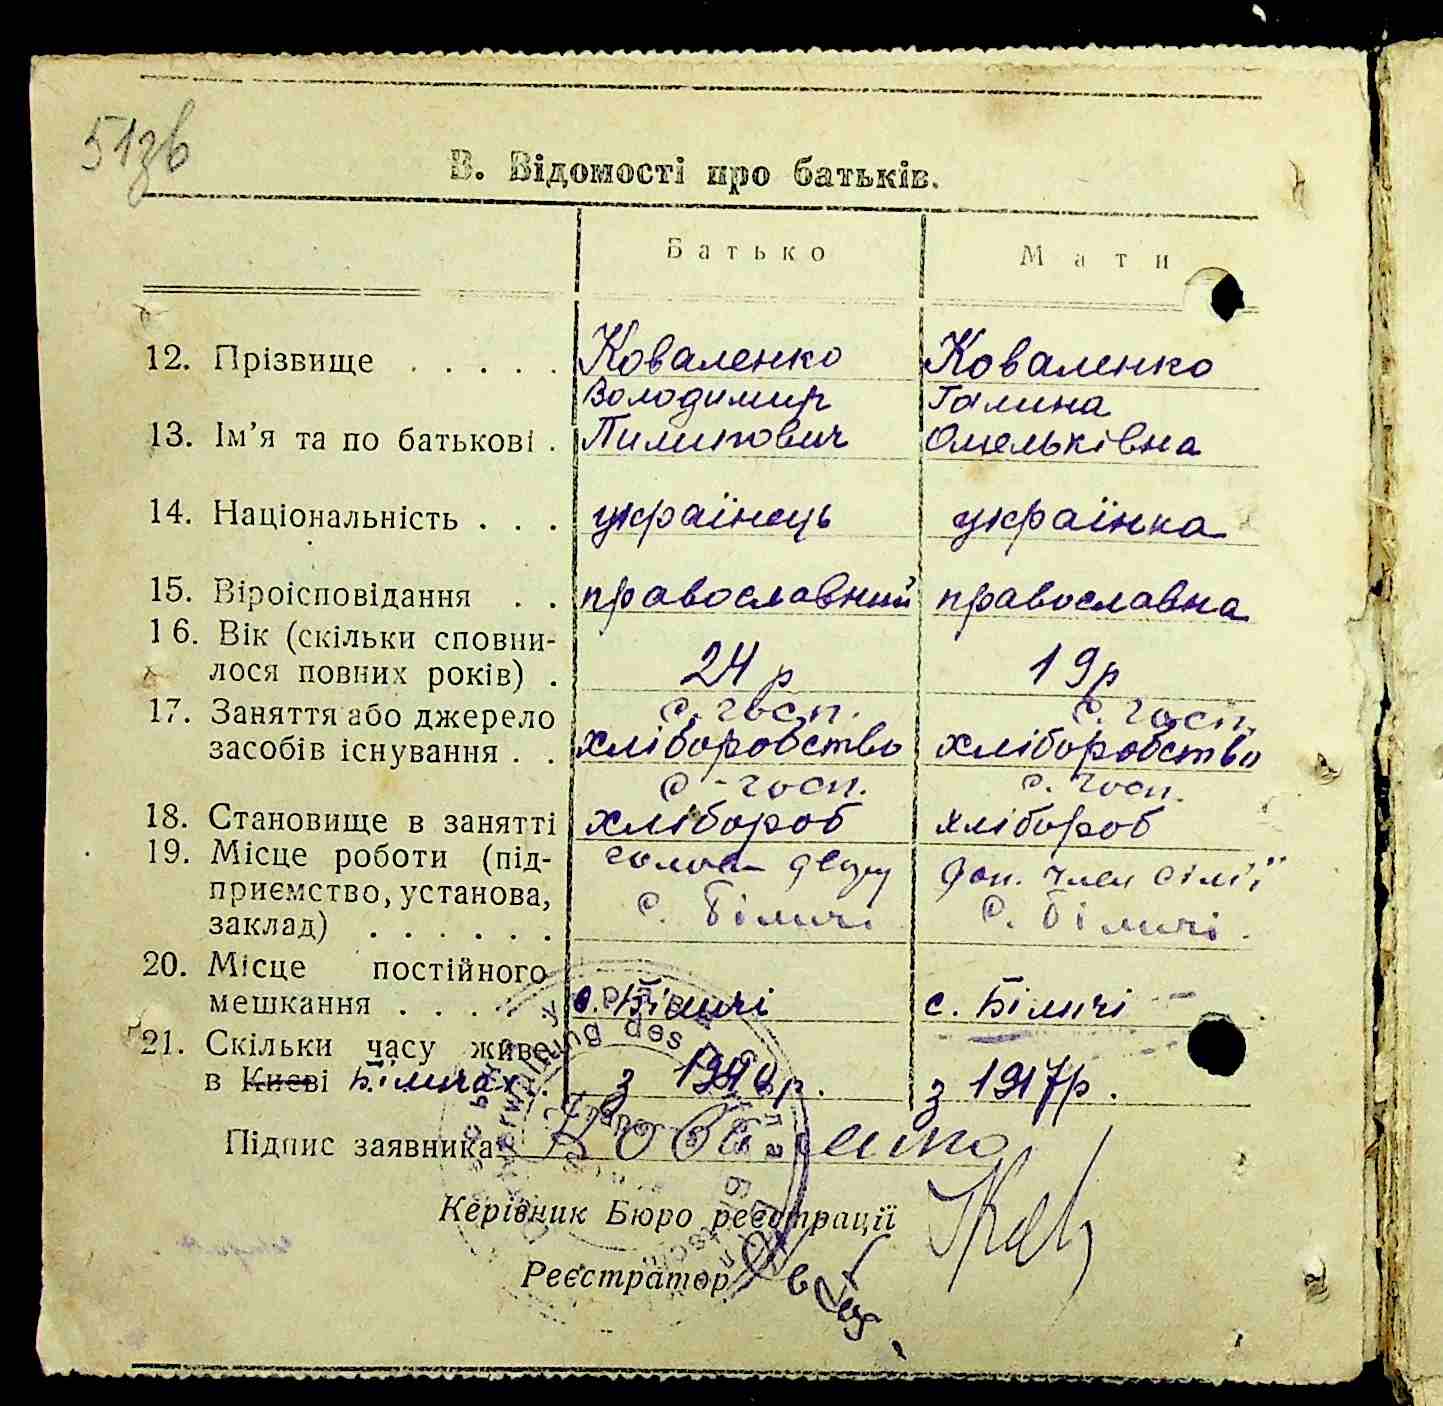 51зв
В. Відомості про батьків.
Батько Мати
12. Прізвище . . . . . Коваленко Коваленко
Володимир Галина
13. Ім'я та по батькові . Пилипович Омельківна
14. Національність . . . українець українка
15. Віроісповідання . . православний православна
16. Вік (скільки сповни-
лося повних років) . 24 р 19р
17. Заняття або джерело с. госп. с. госп.
засобів існування . . хліборобство хліборобство
с-госп. с. госп.
18. Становище в занятті хлібороб хлібороб
19. Місце роботи (під- голова двору доп. член сім'ї
приємство, установа, с. Біличі с. Біличі
заклад) . . . . . .
20. Місце постійного
мешкання . . . . с. Біличі с. Біличі
21. Скільки часу живе
в Києві Біличах . з р. з р.
Підпис заявника Коваленко
Керівник Бюро реєстрації
Реєстратор